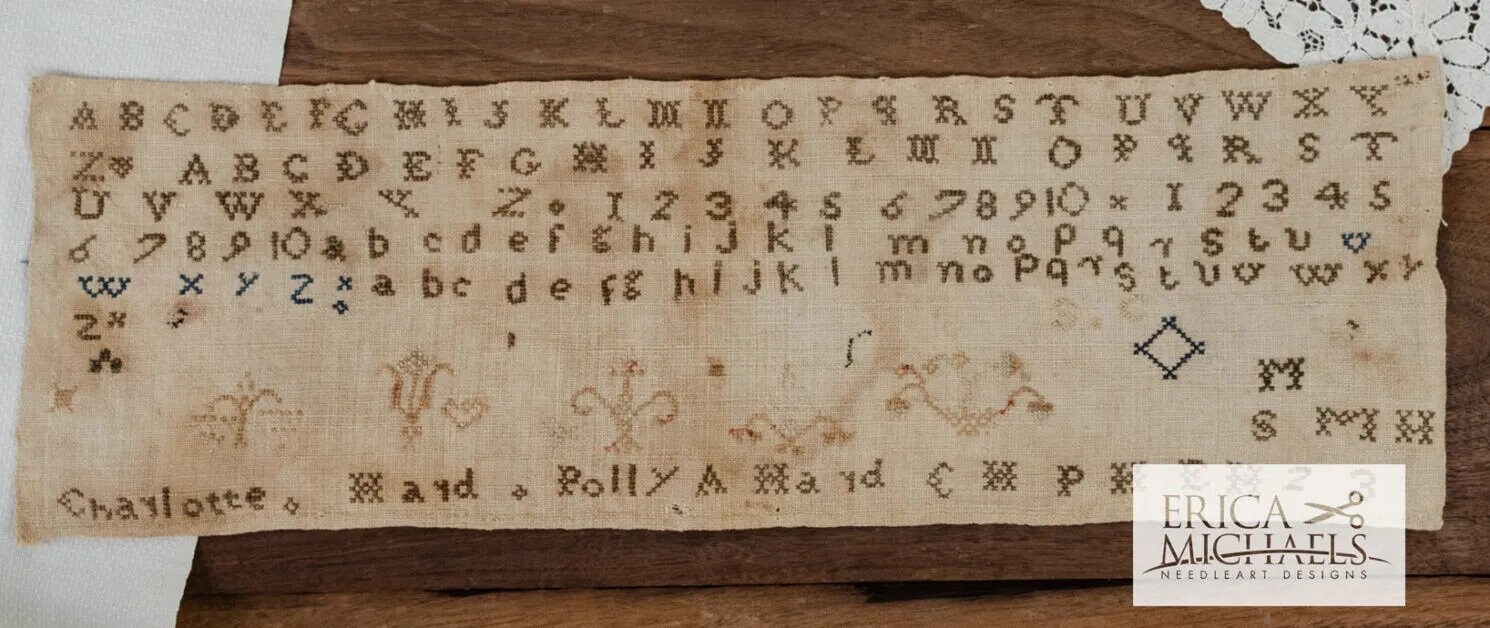 A B C D E F G H I J K L M N O P q R S T U V W X Y
Z A B C D E F G H I J K L M N O P q R S T
U V W X Y Z 1 2 3 4 5 6 7 8 9 10 × 1 2 3 4 5
6 7 8 9 10 a b c d e f g h i j k l m n o p q r s t u v
w x y z × a b c d e f g h i j k l m n o p q r s t u v w x y
z ×
M
S M H
Charlotte Hard Polly A Hard C H P H E H 2 3
ERICA
MICHAELS
NEEDLEART DESIGNS